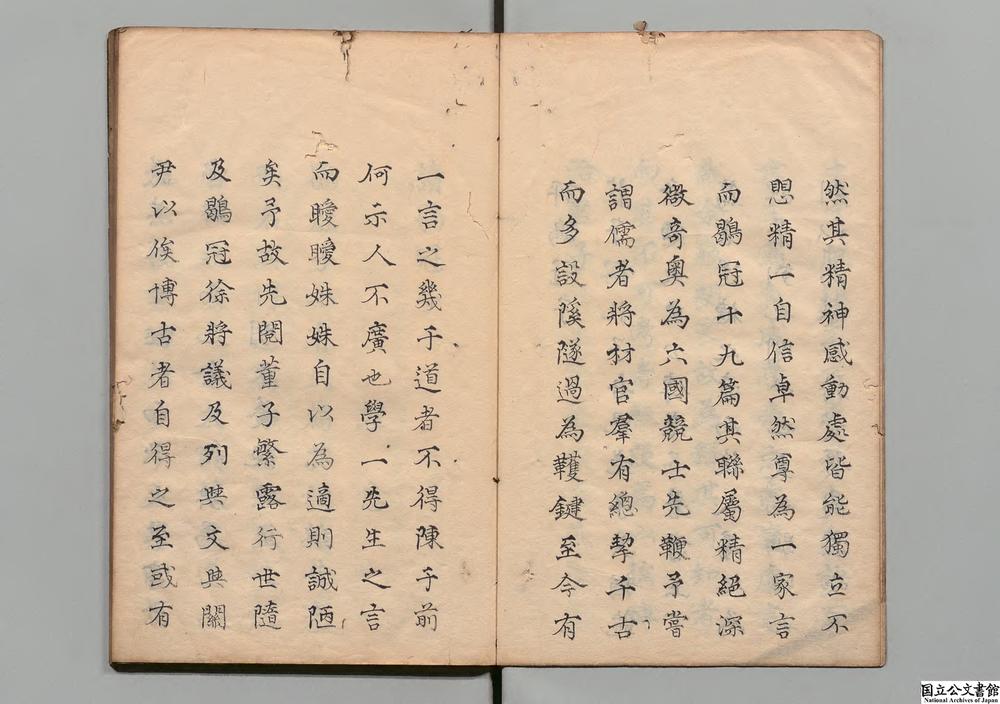 然其精神感動處皆能獨立不
愳精一自信卓然尊為一家言
而鶡冠十九篇其聯屬精絕深
微奇奧為六國競士先鞭予嘗
謂儒者將材官羣有總挈千古
而多設溪隧過為鞿鍵至今有
一言之幾乎道者不得陳于前
何示人不廣也學一先生之言
而曖曖姝姝自以為適則誠陋
矣予故先閱董子繁露行世隨
及鶡冠徐將議及列與文與關
尹以俟博古者自得之至或有
国立公文書館
National Archives of Japan